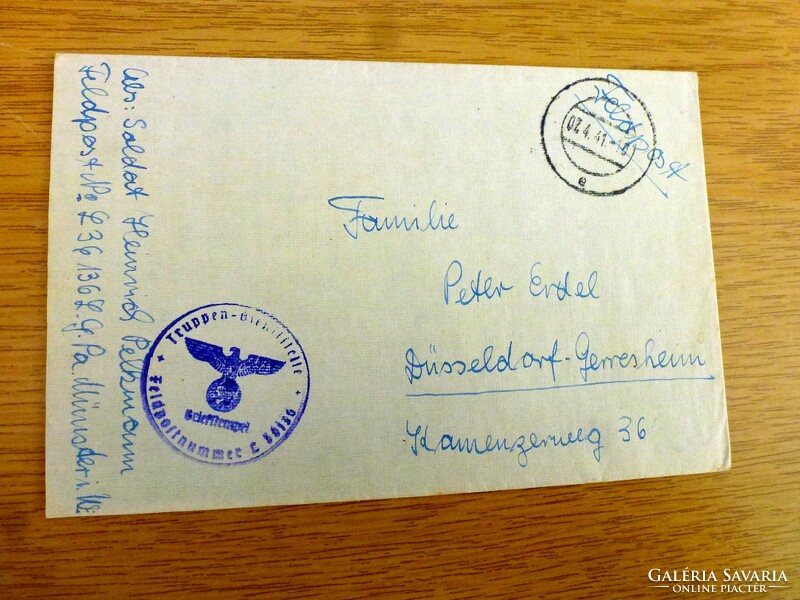 Feldpost
07.4.41.
e
Familie
Peter Erdel
Düsseldorf-Gerresheim
Kamenzerweg 36
Abs: Soldat Heinrich
Feldpost No L 36136 L.G.Pa. Münster i. W.
Truppen-Dienststelle
Briefstempel
Feldpostnummer L 36136
GALÉRIA SAVARIA
ONLINE PIACTÉR